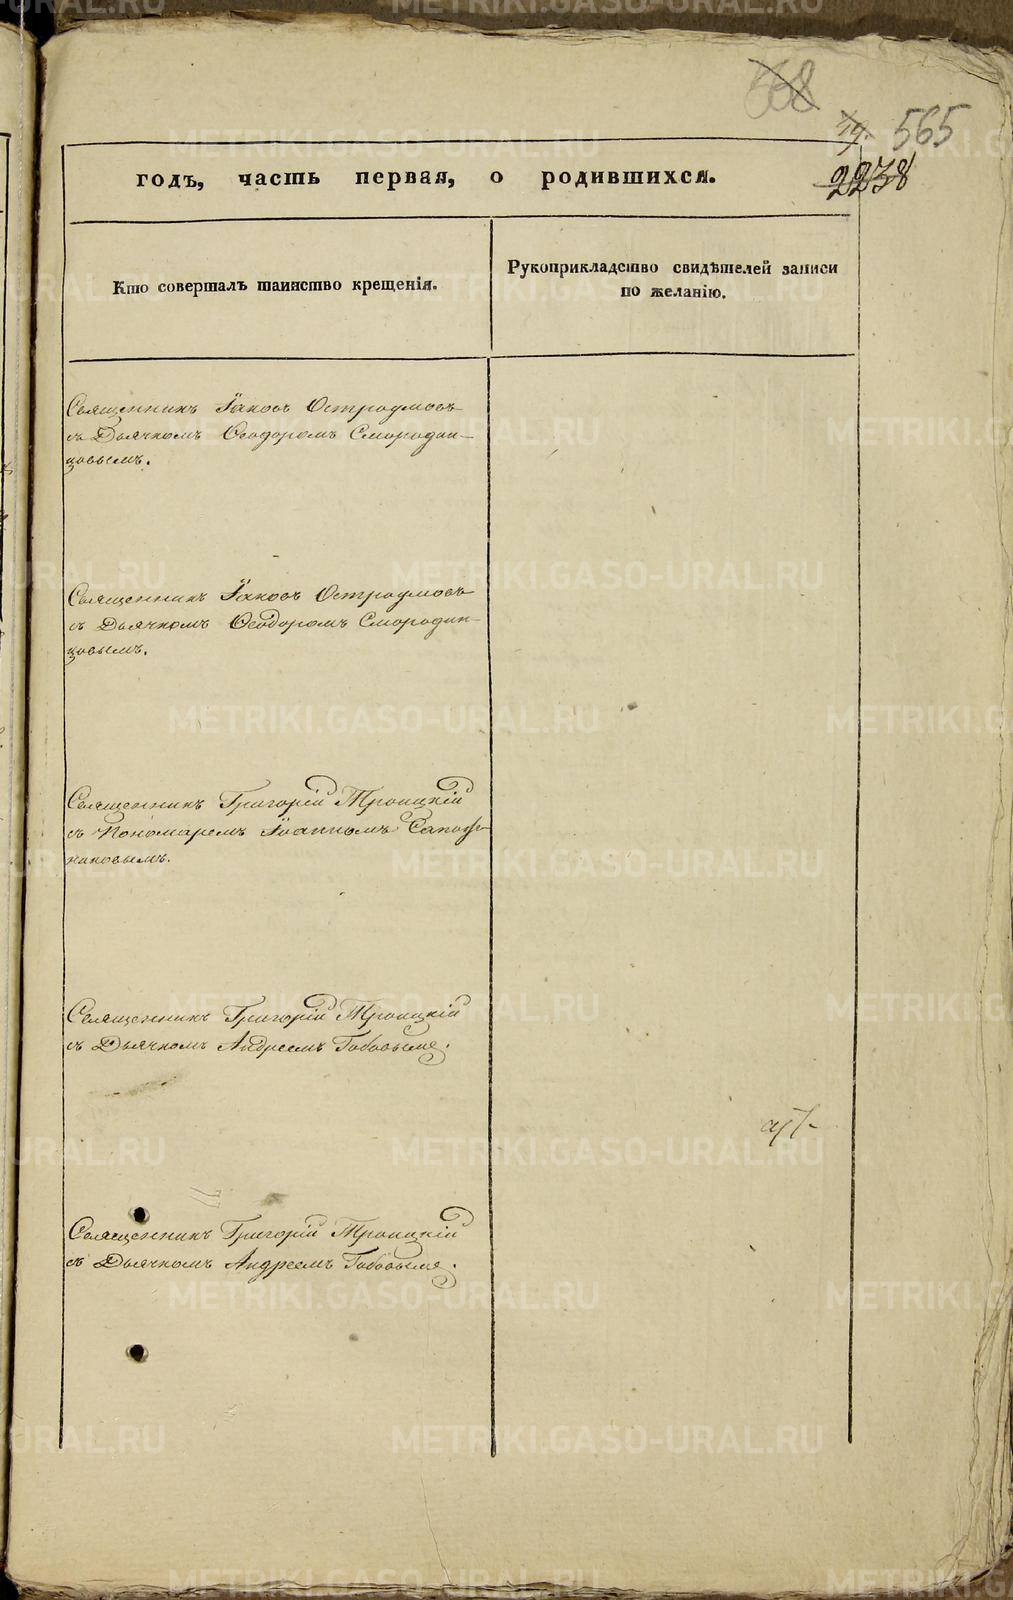 568
19.
565
2238
годъ, часть первая, о родившихся.
Кто совершалъ таинство крещенія.
Рукоприкладство свидѣтелей записи
по желанію.
Священникъ Іаковъ Остроумовъ
съ Дьячкомъ Ѳеодоромъ Смородин-
цовымъ.
Священникъ Іаковъ Остроумовъ
съ Дьячкомъ Ѳеодоромъ Смородин-
цовымъ.
Священникъ Григорій Троицкій
съ Пономаремъ Іоанномъ Сапож-
никовымъ.
Священникъ Григорій Троицкій
съ Дьячкомъ Андреемъ
Священникъ Григорій Троицкій
съ Дьячкомъ Андреемъ
METRIKI.GASO-URAL.RU